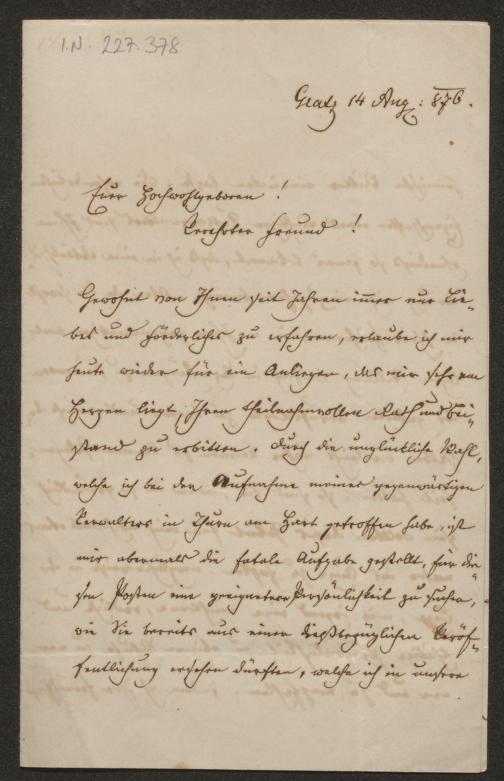 I.N. 227.378
Gratz 14 Aug: 876.
Euer Hochwohlgeboren!
Verehrter Freund!
Gewohnt von Ihnen seit Jahren immer nur Lie-
bes und Förderliches zu erfahren, erlaube ich mir
heute wieder für ein Anliegen, das mir sehr am
Herzen liegt, Ihren theilnahmvollen Rath und Bei-
stand zu erbitten. Durch die unglückliche Wahl,
welche ich bei der Aufnahme meines gegenwärtigen
Verwalters in Thurn am Hart getroffen habe, ist
mir abermals die fatale Aufgabe gestellt, für die-
sen Posten eine geeignetere Persönlichkeit zu suchen,
wie Sie bereits aus einer dießbezüglichen Veröf-
fentlichung ersehen dürften, welche ich in unsere